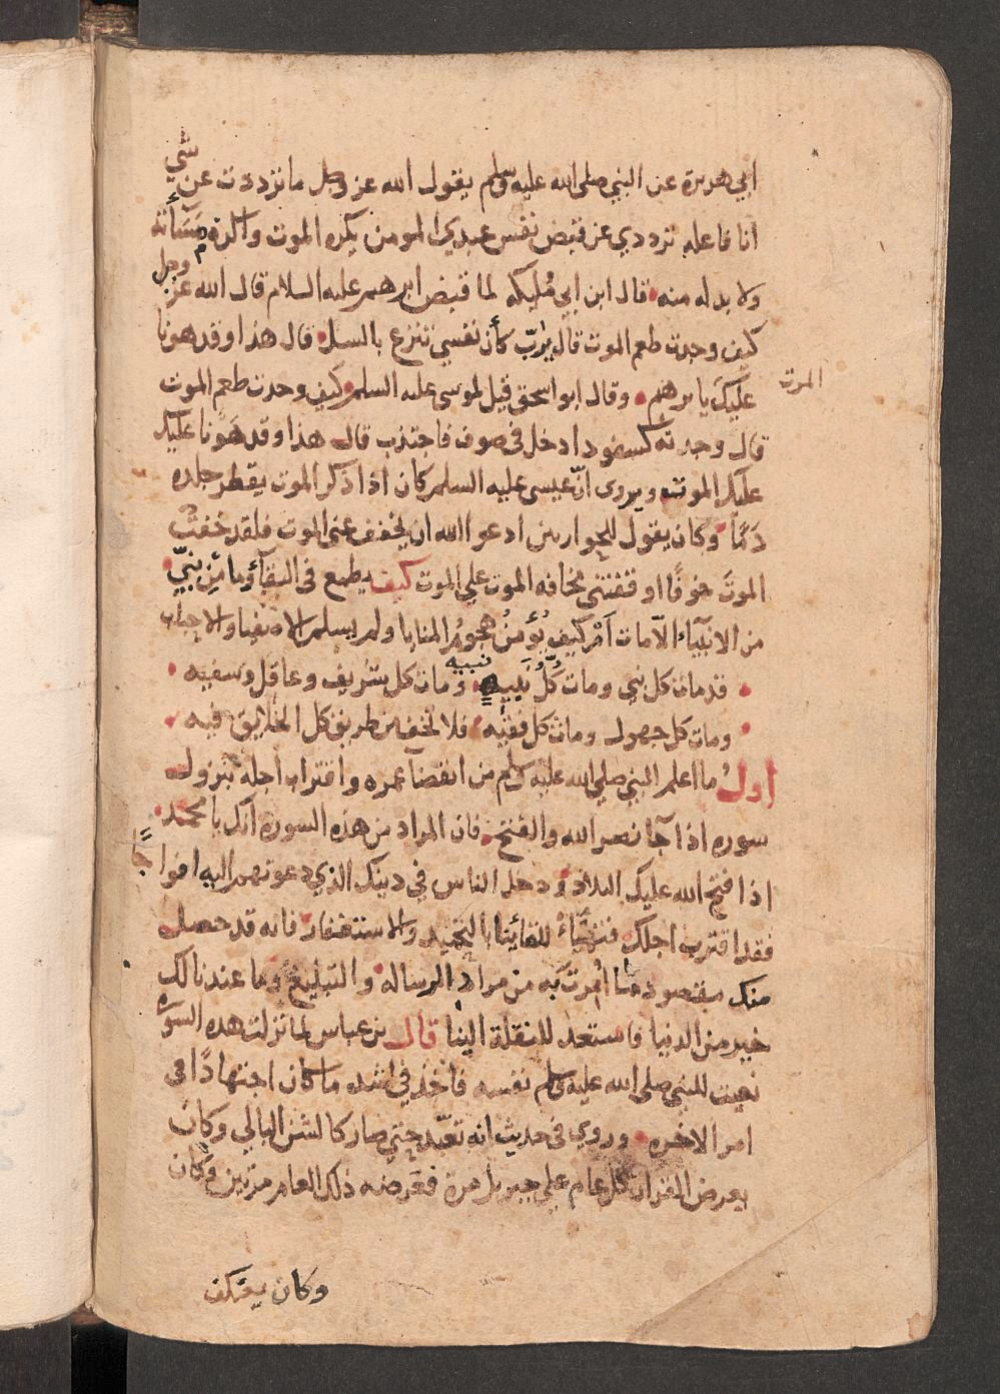 ابي هريرة عن النبي صلى الله عليه وسلم يقول الله عز وجل ما ترددت عن شي
انا فاعله ترددي عن قبض نفس عبدي المومن يكره الموت واكره مسأته
ولا بد له منه قال ابن ابي مليكه لما قبض ابرهيم عليه السلام قال الله عز وجل
كيف وجدت طعم الموت قال يرب كأن نفسي تنزع بالسلا قال هذا وقد هونا
عليك يابرهيم وقال ابو اسحق قيل لموسى عليه السلم كيف وجدت طعم الموت
الموت
قال وجدته كسفود ادخل في صوف فاجتذب قال هذا وقد هونا عليك
عليك الموت ويروى انّ عيسى عليه السلم كان اذا ذكر الموت يقطر جلده
دمًا وكان يقول للحوارين ادعوا الله ان يخفف عني الموت فلقد خفت
الموت خوفًا اوقفتني مخافه الموت علي الموت كيف يطمع في البقآ وما من نبيّ
من الانبيآء الّا مات أم كيف يُؤمنُ هجومُ المنايا ولم يسلم الاصفيا والاحباب
قد مات كل نبي ومات كلُّ نبيه نبيه ومات كل شريف وعاقل وسفيه
ومات كل جهول ومات كل فقيه فلا تخف من طريق كل الخلايق فيه
اول ما اعلم النبي صلى الله عليه وسلم من انقضآ عمره واقتراب اجله بنزول
سوره اذا جآ نصر الله والفتح فان المراد من هذه السوره انك يا محمد
اذا فتح الله عليك البلاد ودخل الناس في دينك الذي دعوتهم اليه افواجًا
فقد اقترب اجلك فتهيّاء للقائنا بالتحميد والاستغفار فانه قد حصل
منك مقصود ما أُمرتَ به من مراد الرساله والتبليغ وما عندنا لك
خير من الدنيا فاستعد للنقلة الينا قال بن عباس لما نزلت هذه السوره
نعيت للنبي صلى الله عليه وسلم نفسه فاخذ في اشد ما كان اجتهادًا في
امر الاخره وروي في حديث انه تعبّد حتي صار كالشن البالي وكان
يعرض القران كل عام علي جبريل مرة فعرضه ذلك العام مرتين وكان
وكان يعتكف